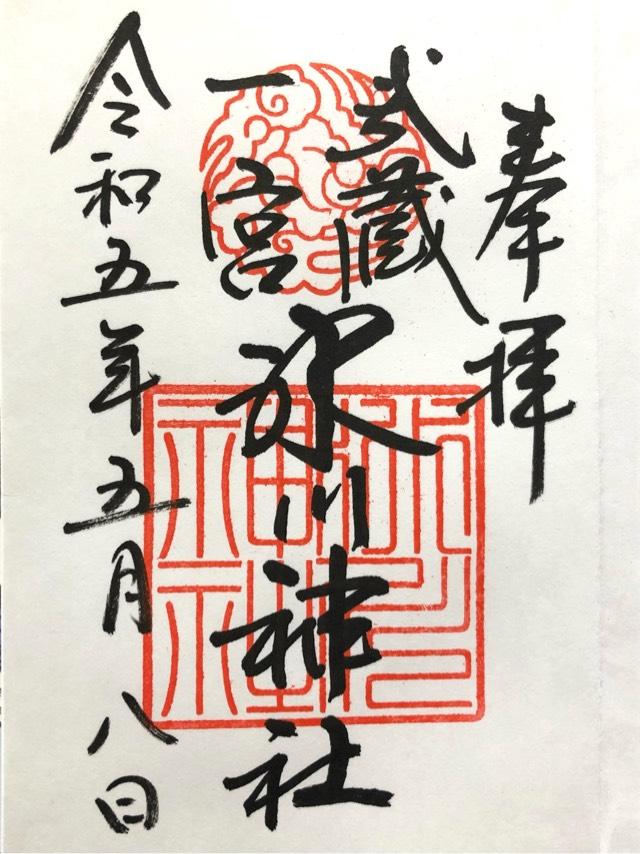 奉拝
武蔵
一宮
氷川神社
令和五年五月八日